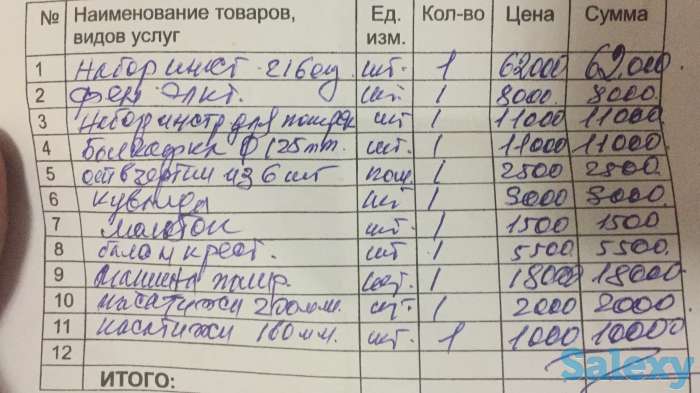 № Наименование товаров, видов услуг Ед. изм. Кол-во Цена Сумма
1 Набор инст. 216ед шт. 1 62000 62000
2 фен элкт. шт. 1 8000 8000
3 Набор инстр для шт 1 11000 11000
4 болгарка ф 125mm. шт. 1 11000 11000
5 отвертки из 6 шт 1 2500 2500
6 кувалда шт 1 3000 3000
7 молоток шт. 1 1500 1500
8 балон крест. шт 1 5500 5500
9 машина шт. 1 18000 18000
10 пасатижи 200мм. шт 1 2000 2000
11 пасатижи 160мм. шт. 1 1000 10000
12
ИТОГО:
Salexy